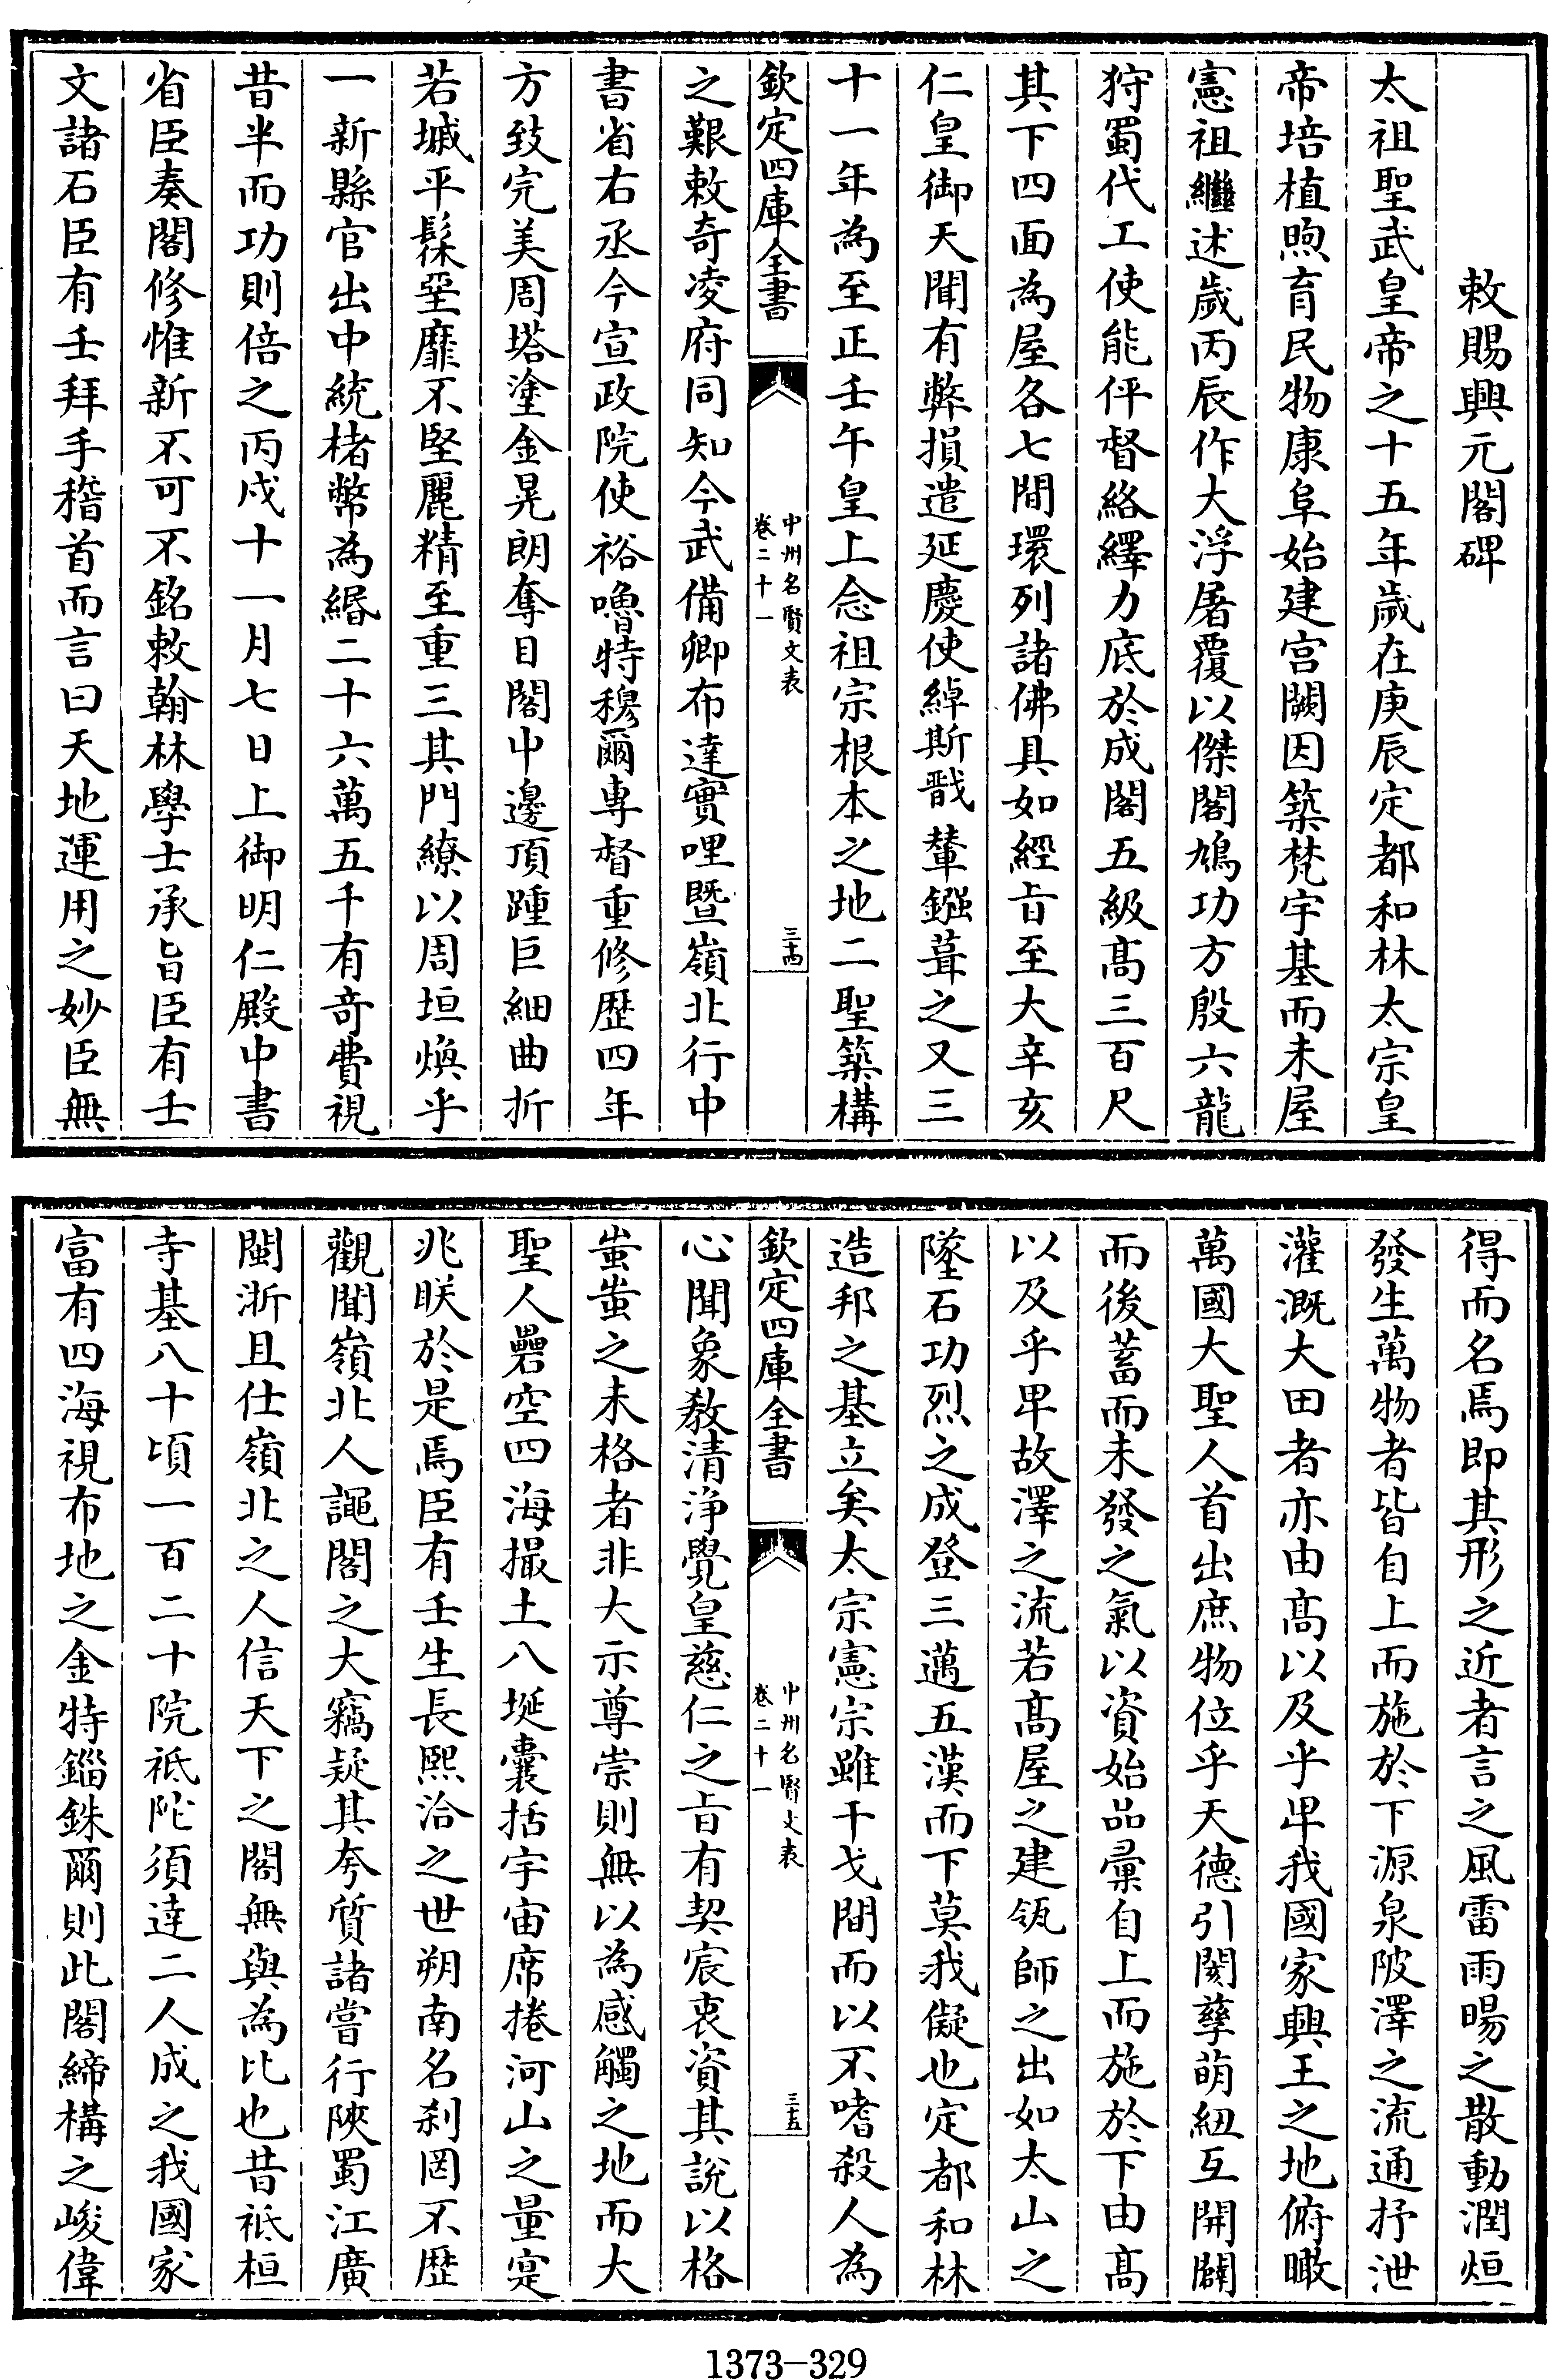 敕賜興元閣碑
太祖聖武皇帝之十五年歲在庚辰定都和林太宗皇
帝培植煦育民物康阜始建宫闕因築梵宇基而未屋
憲祖繼述歲丙辰作大浮屠覆以傑閣鳩功方殷六龍
狩蜀代工使能伻督絡繹力底於成閣五級高三百尺
其下四面為屋各七間環列諸佛具如經㫖至大辛亥
仁皇御天聞有弊損遣延慶使綽斯戩輦鏹葺之又三
十一年為至正壬午皇上念祖宗根本之地二聖築構
欽定四庫全書
中州名賢文表
卷二十一
三十四
之艱敕竒凌府同知今武備卿布達實哩暨嶺北行中
書省右丞今宣政院使裕嚕特穆爾專督重修歴四年
方致完美周塔塗金晃朗奪目閣中邊頂踵巨細曲折
若墄平髹堊靡不堅麗精至重三其門繚以周垣煥乎
一新縣官出中統楮幣為緡二十六萬五千有竒費視
昔半而功則倍之丙戌十一月七日上御明仁殿中書
省臣奏閣修惟新不可不銘敕翰林學士承旨臣有壬
文諸石臣有壬拜手稽首而言曰天地運用之妙臣無
得而名焉即其形之近者言之風雷雨暘之散動潤烜
發生萬物者皆自上而施於下源泉陂澤之流通抒泄
灌溉大田者亦由高以及乎卑我國家興王之地俯瞰
萬國大聖人首出庶物位乎天德引闋孳萌紐互開闢
而後蓄而未發之氣以資始品彙自上而施於下由高
以及乎卑故澤之流若高屋之建瓴師之出如太山之
墜石功烈之成登三邁五漢而下莫我儗也定都和林
造邦之基立矣太宗憲宗雖干戈間而以不嗜殺人為
欽定四庫全書
中州名賢文表
卷二十一
三十五
心聞象教清淨覺皇慈仁之㫖有契宸衷資其說以格
蚩蚩之未格者非大示尊崇則無以為感觸之地而大
聖人礨空四海撮土八埏囊括宇宙席捲河山之量寔
兆眹於是焉臣有壬生長熙洽之世朔南名刹罔不歴
觀聞嶺北人譝閣之大竊疑其夸質諸嘗行陜蜀江廣
閩浙且仕嶺北之人信天下之閣無與為比也昔祗桓
寺基八十頃一百二十院祗陀須達二人成之我國家
富有四海視布地之金特錙銖爾則此閣締構之峻偉
1373-329